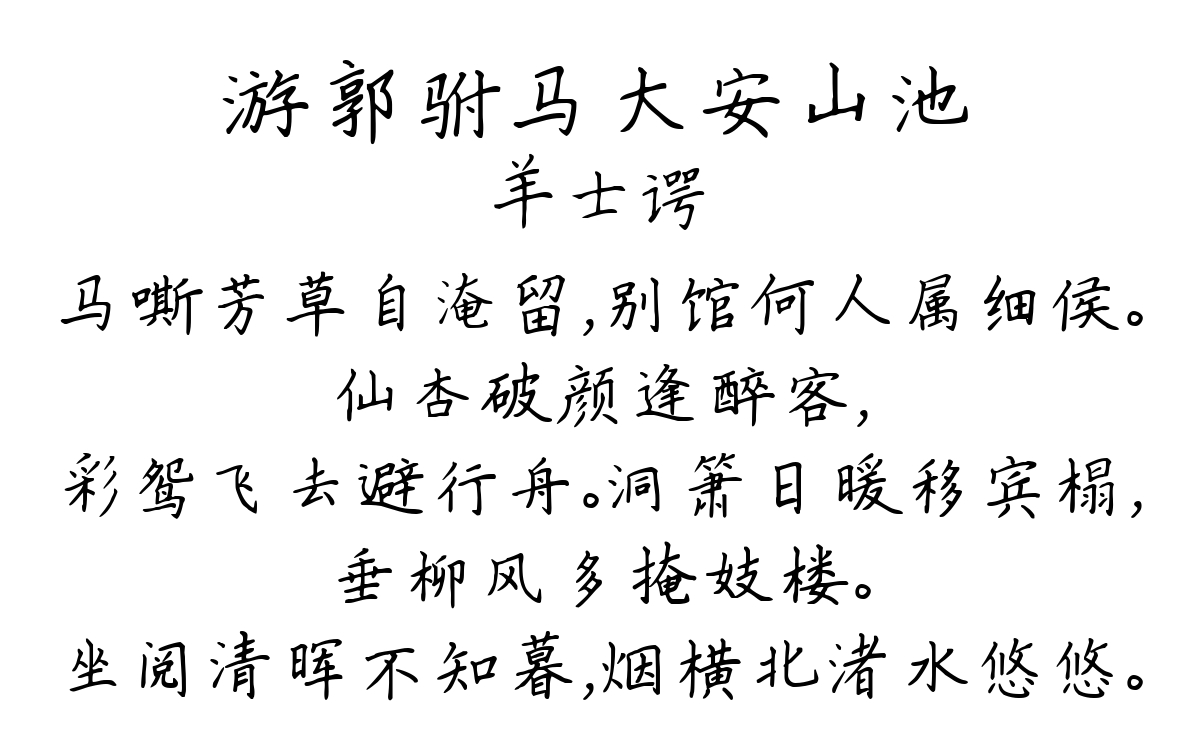 游郭驸马大安山池
羊士谔
马嘶芳草自淹留,别馆何人属细侯。
仙杏破颜逢醉客,
彩鸳飞去避行舟。洞箫日暖移宾榻,
垂柳风多掩妓楼。
坐阅清晖不知暮,烟横北渚水悠悠。